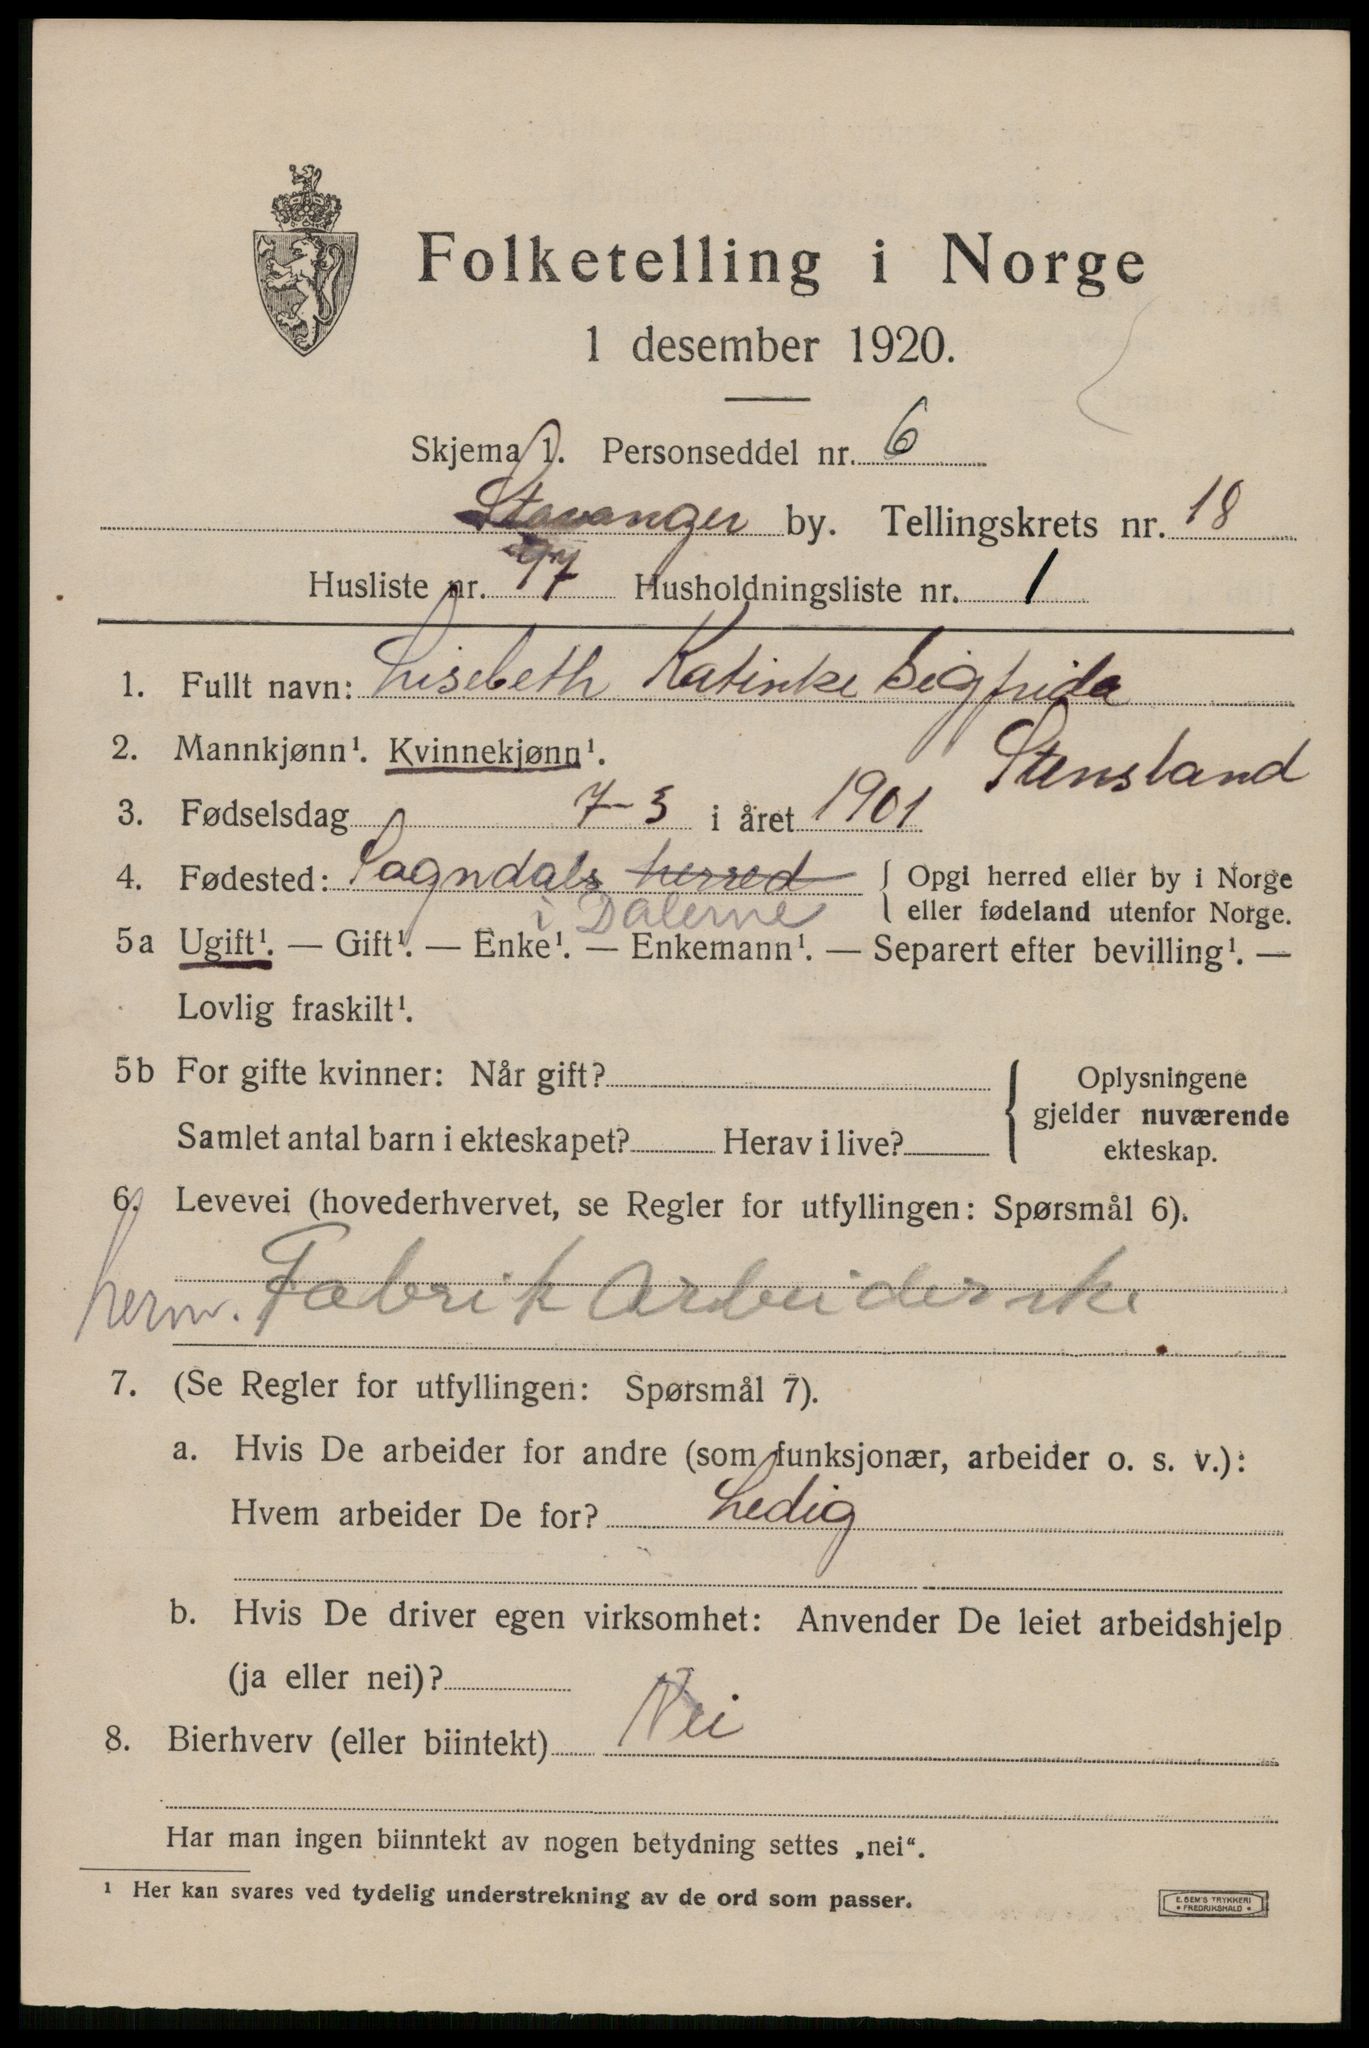 Folketelling i Norge
1 desember 1920.
Skjema 1. Personseddel nr. 6
Stavanger by. Tellingskrets nr. 18
Husliste nr. 97 Husholdningsliste nr. 1
1. Fullt navn: Lisebeth Katinke Sigfrida
Stensland
2. Mannkjønn¹. Kvinnekjønn¹.
3. Fødselsdag 7-3 i året 1901
4. Fødested: Sogndals herred { Opgi herred eller by i Norge
i Dalerne eller fødeland utenfor Norge.
5a Ugift¹. — Gift¹. — Enke¹. — Enkemann¹. — Separert efter bevilling¹. —
Lovlig fraskilt¹.
5b For gifte kvinner: Når gift? { Oplysningene
gjelder nuværende
Samlet antal barn i ekteskapet? Herav i live? ekteskap.
6. Levevei (hovederhvervet, se Regler for utfyllingen: Spørsmål 6).
herm. Fabrik Arbeiderske
7. (Se Regler for utfyllingen: Spørsmål 7).
a. Hvis De arbeider for andre (som funksjonær, arbeider o. s. v.):
Hvem arbeider De for? Ledig
b. Hvis De driver egen virksomhet: Anvender De leiet arbeidshjelp
(ja eller nei)?
8. Bierhverv (eller biintekt) Nei
Har man ingen biinntekt av nogen betydning settes „nei“.
¹ Her kan svares ved tydelig understrekning av de ord som passer.
E. SEM'S TRYKKERI
• FREDRIKSHALD •